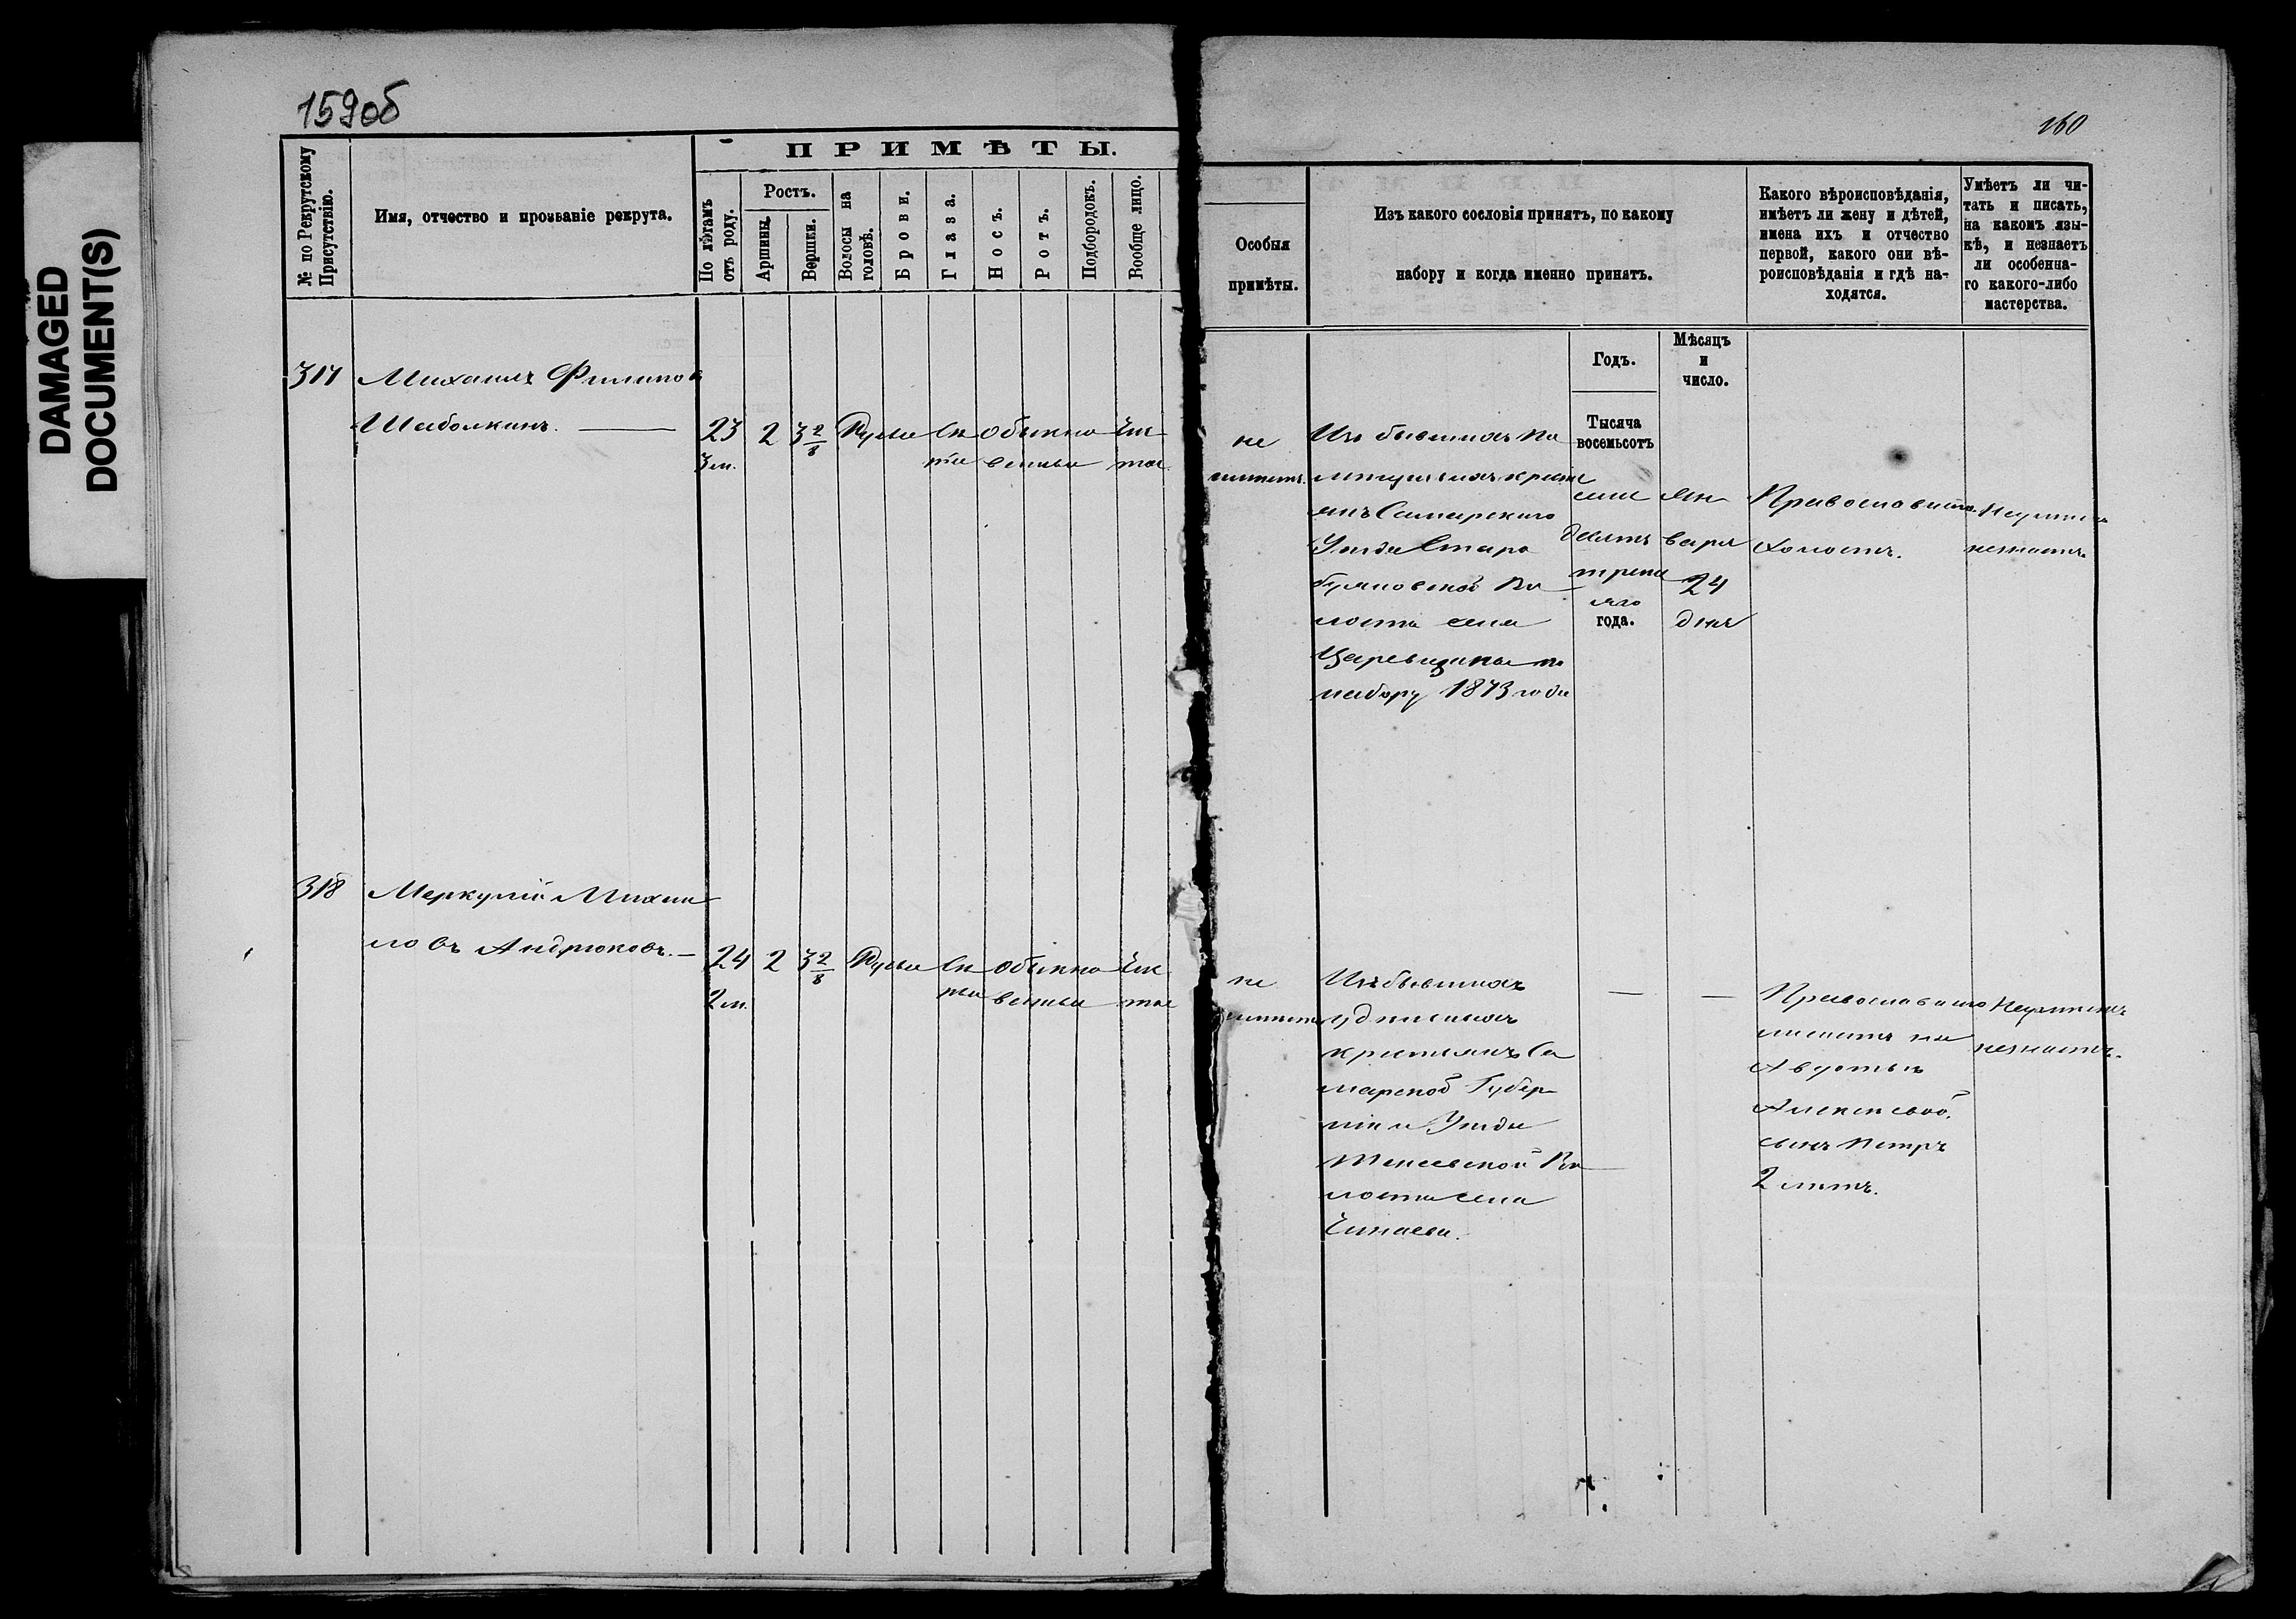 DAMAGED
DOCUMENT(S)
159об
160
№ по Рекрутскому
Присутствію.
Имя, отчество и прозваніе рекрута.
ПРИМѢТЫ.
По лѣтамъ
отъ роду.
Ростъ.
Аршины.
Вершки.
Волосы на
головѣ.
Брови.
Глаза.
Носъ.
Ротъ.
Подбородокъ.
Вообще лицо.
Особыя
примѣты.
Изъ какого сословія принятъ, по какому
набору и когда именно принятъ.
Какого вѣроисповѣданія,
имѣетъ ли жену и дѣтей,
имена ихъ и отчество
первой, какого они вѣ-
роисповѣданія и гдѣ на-
ходятся.
Умѣетъ ли чи-
тать и писать,
на какомъ язы-
кѣ, и незнаетъ
ли особенна-
го какого-либо
мастерства.
Годъ.
Мѣсяцъ
и
число.
Тысяча
восемьсотъ
317
Михаилъ Филипов
Шаболкинъ.
23
3 м.
2
3 2/8
Русые
Сѣ
рые
Обыкно
венные
Чис
тое
не
имѣетъ.
Изъ бывшихъ по
мѣщичьихъ кресть
янъ Самарскаго
Уѣзда Старо
буяновской Во
лости села
Царевщины по
набору 1873 года
семи
десятъ
треть
яго
года.
Ян
варя
24
дня
Православнаго
Холостъ.
Неумѣетъ
незнаетъ
318
Меркулій Михаи
ловъ Андрюковъ.
24
2 м.
2
3 2/8
Русые
Сѣ
рые
Обыкно
венные
Чис
тое
не
имѣетъ
Изъ бывшихъ
удѣльныхъ
крестьянъ Са
марской Губер
ніи и Уѣзда
Волости села
Чинаева.
Православнаго
женатъ на
Авдотьѣ
Алексѣевой.
сынъ Петръ
2 лѣтъ.
Неумѣетъ
незнаетъ.